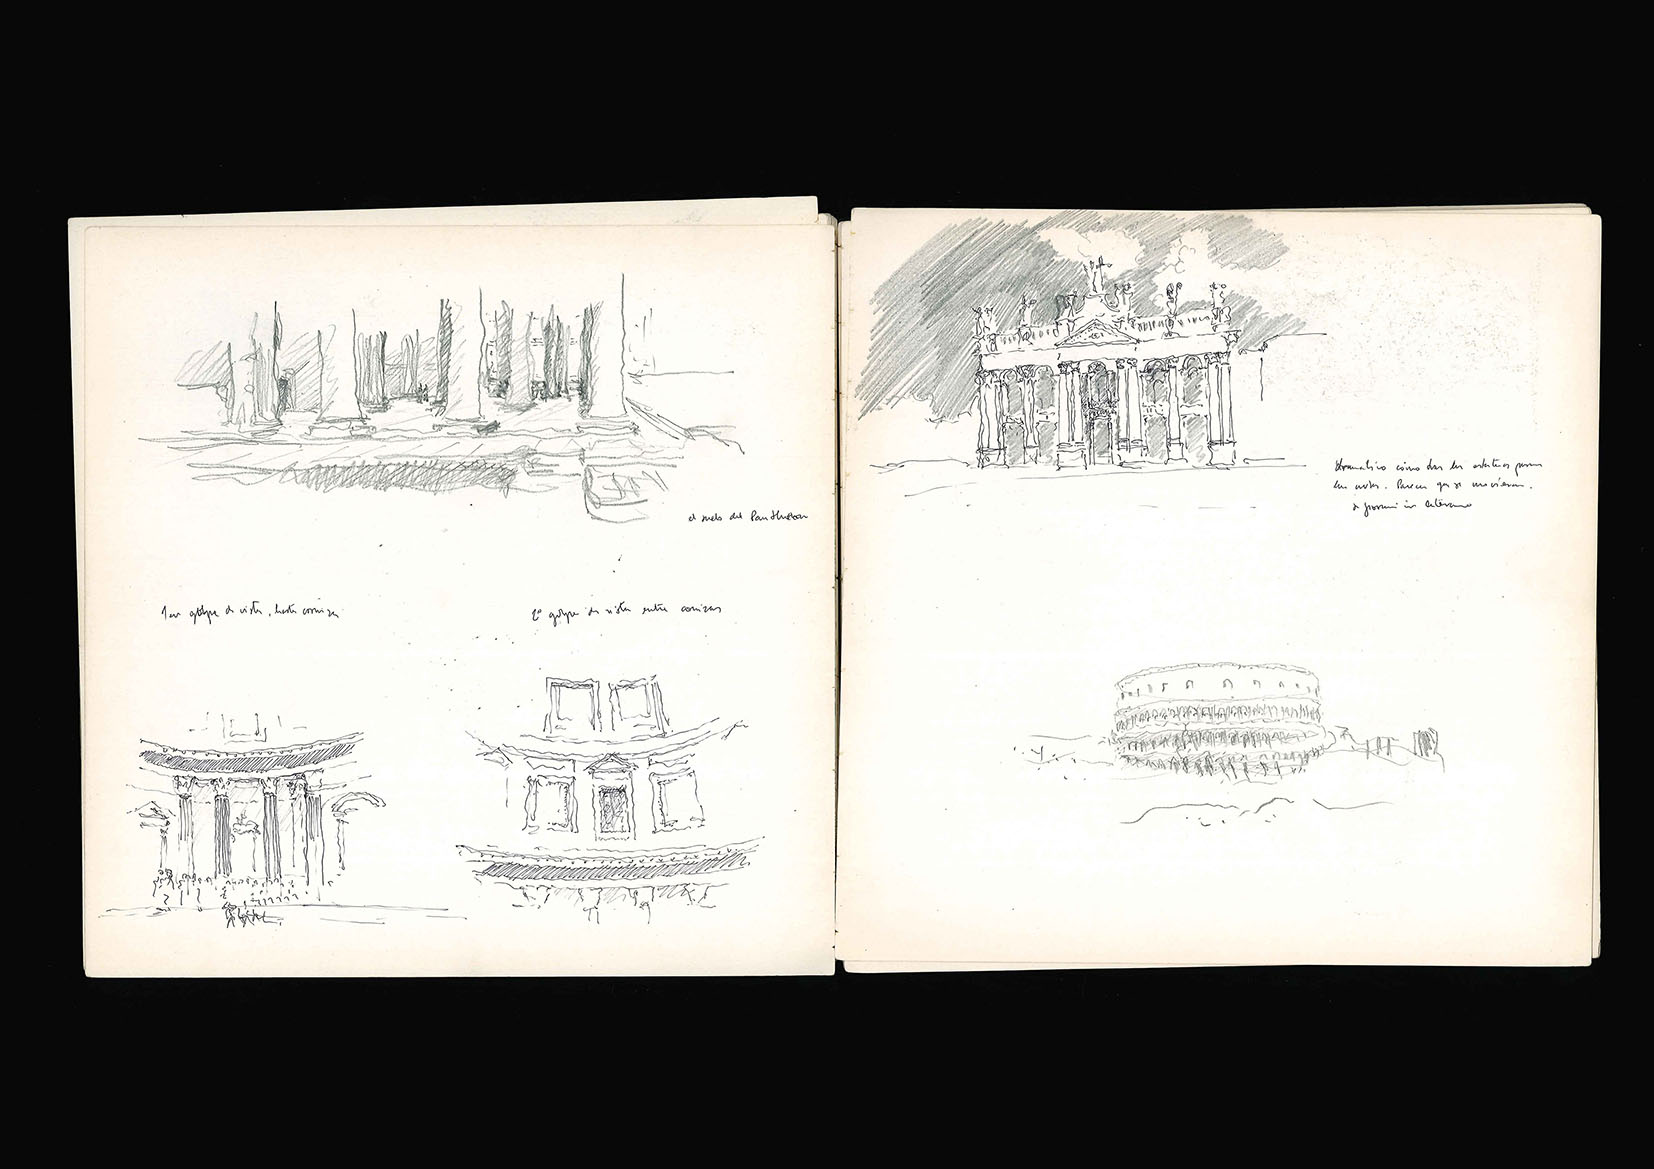 el suelo del Pantheon
1er golpe de vista, hasta cornisa
2º golpe de vista entre cornisas
dramático cómo las estatuas
Parecen que se movieran.
S. Giovanni in Laterano